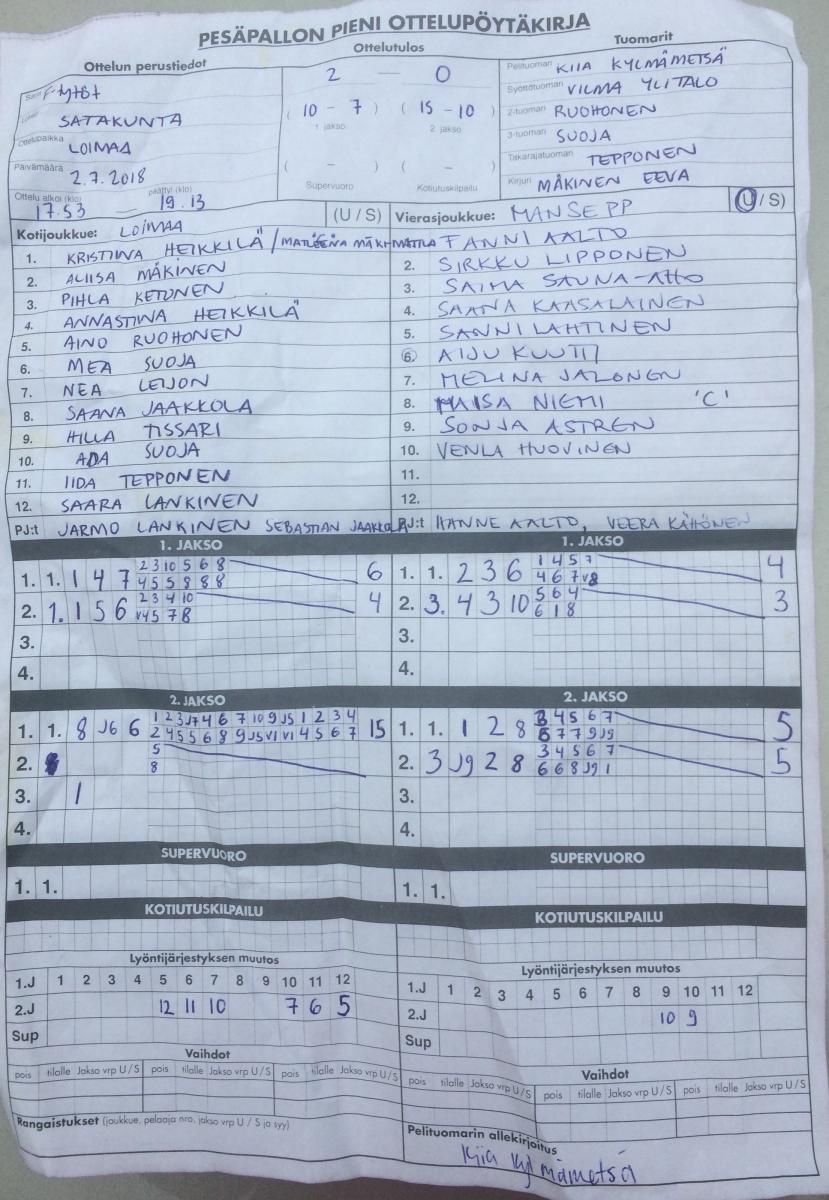 PESÄPALLON PIENI OTTELUPÖYTÄKIRJA
Ottelun perustiedot
Sarja F-tytöt
SATAKUNTA
Ottelupaikka LOIMAA
Päivämäärä 2.7.2018
Ottelu alkoi (klo) 17.53 — päättyi (klo) 19.13
Ottelutulos
2 — 0
( 10 - 7 ) ( 15 - 10 )
1. jakso 2. jakso
( - ) ( - )
Supervuoro Kotiutuskilpailu
Tuomarit
Pelituomari KIIA KYLMÄMETSÄ
Syöttötuomari VILMA YLITALO
2-tuomari RUOHONEN
3-tuomari SUOJA
Takarajatuomari TEPPONEN
Kirjuri MÄKINEN EEVA
Kotijoukkue: LOIMAA (U / S)
1. KRISTIINA HEIKKILÄ / MATLEENA MÄKI-MATTILA
2. ALIISA MÄKINEN
3. PIHLA KETONEN
4. ANNASTIINA HEIKKILÄ
5. AINO RUOHONEN
6. MEA SUOJA
7. NEA LEIJON
8. SAANA JAAKKOLA
9. HILLA TISSARI
10. ADA SUOJA
11. IIDA TEPPONEN
12. SAARA LANKINEN
PJ:t JARMO LANKINEN SEBASTIAN JAAKKOLA
Vierasjoukkue: MANSE PP (U / S)
FANNI AALTO
2. SIRKKU LIPPONEN
3. SAIMA SAUNA-AHO
4. SAANA KAASALAINEN
5. SANNI LAHTINEN
6. AIJU KUUTTI
7. MELINA JALONEN
8. MAISA NIEMI 'C'
9. SONJA ASTREN
10. VENLA HUOVINEN
11.
12.
PJ:t HANNE AALTO, VEERA KÄHÖNEN
1. JAKSO
2 3 10 5 6 8
1. 1. 1 4 7 4 5 5 8 8 8 6
2 3 4 10
2. 1. 1 5 6 V4 5 7 8 4
3.
4.
1. JAKSO
1 4 5 7
1. 1. 2 3 6 4 6 7 V8 4
5 6 4
2. 3. 4 3 10 6 1 8 3
3.
4.
2. JAKSO
1 2 3 J7 4 6 7 10 9 J5 1 2 3 4
1. 1. 8 J6 6 2 4 5 5 6 8 9 J5 V1 V1 4 5 6 7 15
5
2. 8
3. 1
4.
2. JAKSO
3 4 5 6 7
1. 1. 1 2 8 6 7 7 9 J9 5
3 4 5 6 7
2. 3 J9 2 8 6 6 8 J9 1 5
3.
4.
SUPERVUORO
1. 1.
SUPERVUORO
1. 1.
KOTIUTUSKILPAILU
KOTIUTUSKILPAILU
Lyöntijärjestyksen muutos
1.J 1 2 3 4 5 6 7 8 9 10 11 12
2.J 12 11 10 7 6 5
Sup
Lyöntijärjestyksen muutos
1.J 1 2 3 4 5 6 7 8 9 10 11 12
2.J 10 9
Sup
Vaihdot
pois tilalle Jakso vrp U / S pois tilalle Jakso vrp U / S pois tilalle Jakso vrp U / S
Vaihdot
pois tilalle Jakso vrp U / S pois tilalle Jakso vrp U / S pois tilalle Jakso vrp U / S
Rangaistukset (joukkue, pelaaja nro, jakso vrp U / S ja syy)
Pelituomarin allekirjoitus
Kiia Kylmämetsä